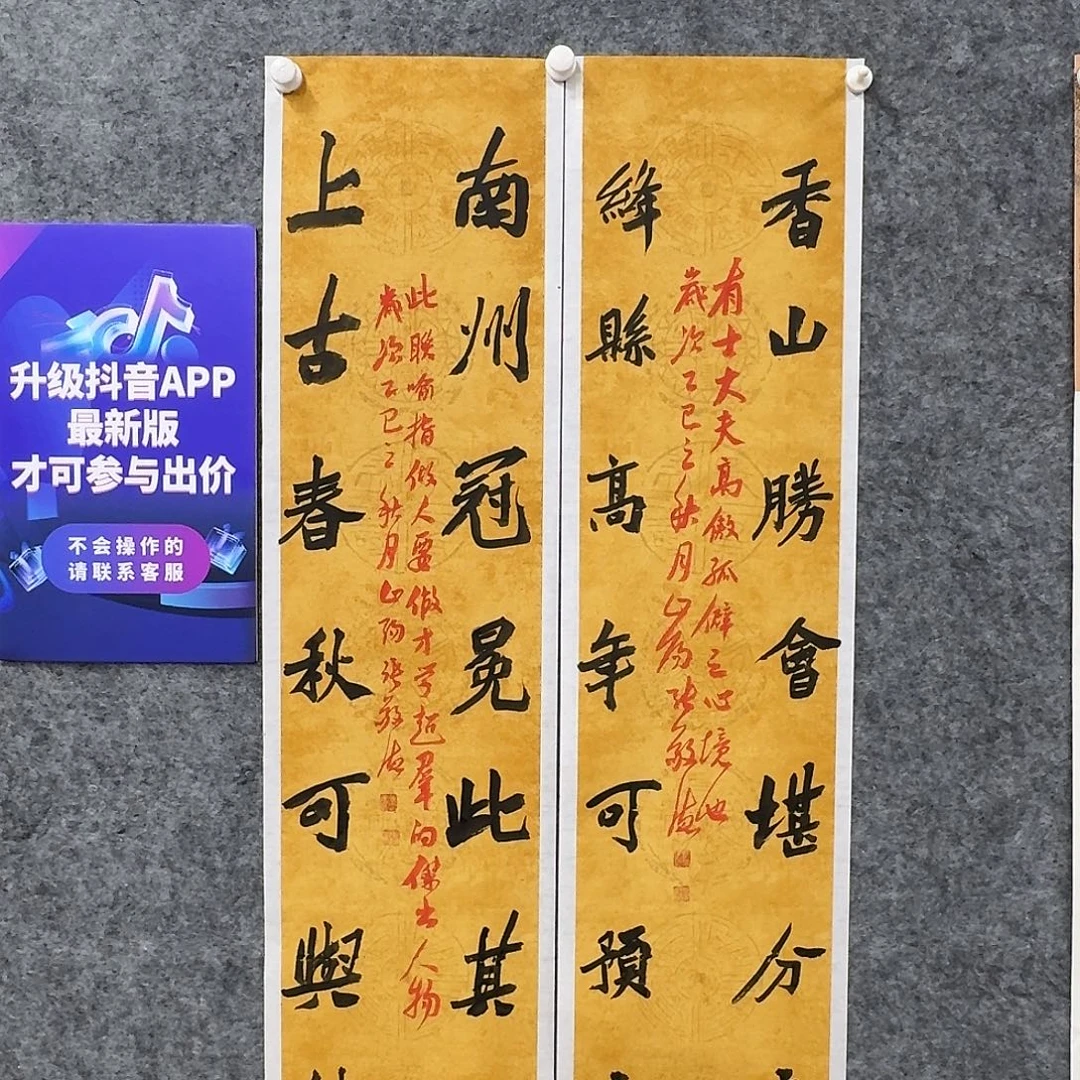 升级抖音APP
最新版
才可参与出价
不会操作的
请联系客服
香山勝會堪分
有士大夫高傲孤僻之心境也
歲次乙巳之秋月山陽張敬
絳縣高年可預
南州冠冕此其
此聯喻指做人要做才学超羣的傑出人物
歲次乙巳之秋月山陽張敬
上古春秋可與